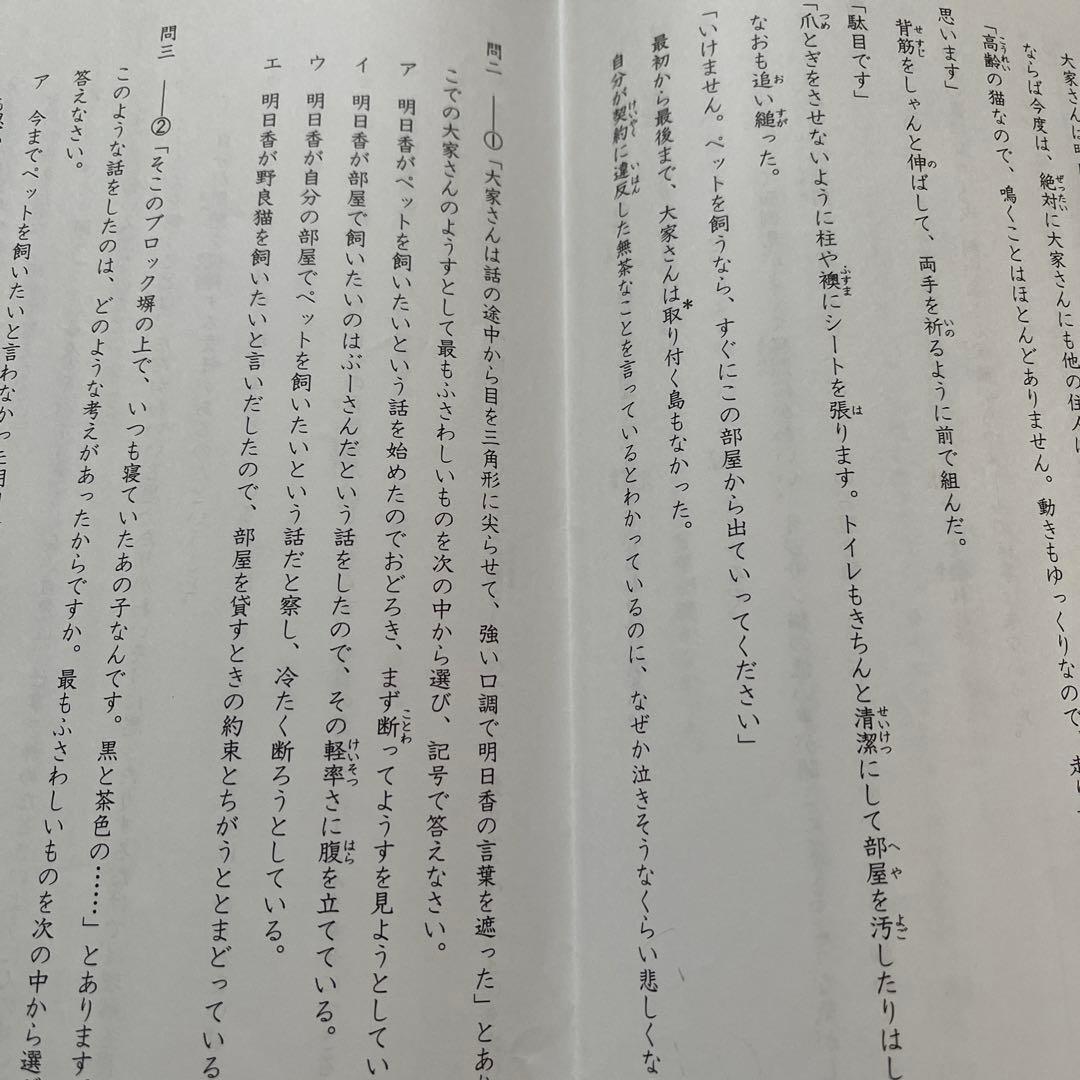 大家さんは
ならば今度は、絶対に大家さんにも他の住人に
「高齢の猫なので、鳴くことはほとんどありません。動きもゆっくりなので、
思います」
背筋をしゃんと伸ばして、両手を祈るように前で組んだ。
「駄目です」
「爪とぎをさせないように柱や襖にシートを張ります。トイレもきちんと清潔にして部屋を汚したりはし
なおも追い縋った。
「いけません。ペットを飼うなら、すぐにこの部屋から出ていってください」
最初から最後まで、大家さんは*取り付く島もなかった。
自分が契約に違反した無茶なことを言っているとわかっているのに、なぜか泣きそうなくらい悲しくな
問二 ――①「大家さんは話の途中から目を三角形に尖らせて、強い口調で明日香の言葉を遮った」とあ
こでの大家さんのようすとして最もふさわしいものを次の中から選び、記号で答えなさい。
ア 明日香がペットを飼いたいという話を始めたのでおどろき、まず断ってようすを見ようとしてい
イ 明日香が部屋で飼いたいのはぶーさんだという話をしたので、その軽率さに腹を立てている。
ウ 明日香が自分の部屋でペットを飼いたいという話だと察し、冷たく断ろうとしている。
エ 明日香が野良猫を飼いたいと言いだしたので、部屋を貸すときの約束とちがうととまどっている
問三 ――②「そこのブロック塀の上で、いつも寝ていたあの子なんです。黒と茶色の……」とあります。
このような話をしたのは、どのような考えがあったからですか。最もふさわしいものを次の中から選び
答えなさい。
ア 今までペットを飼いたいと言わなかった明日